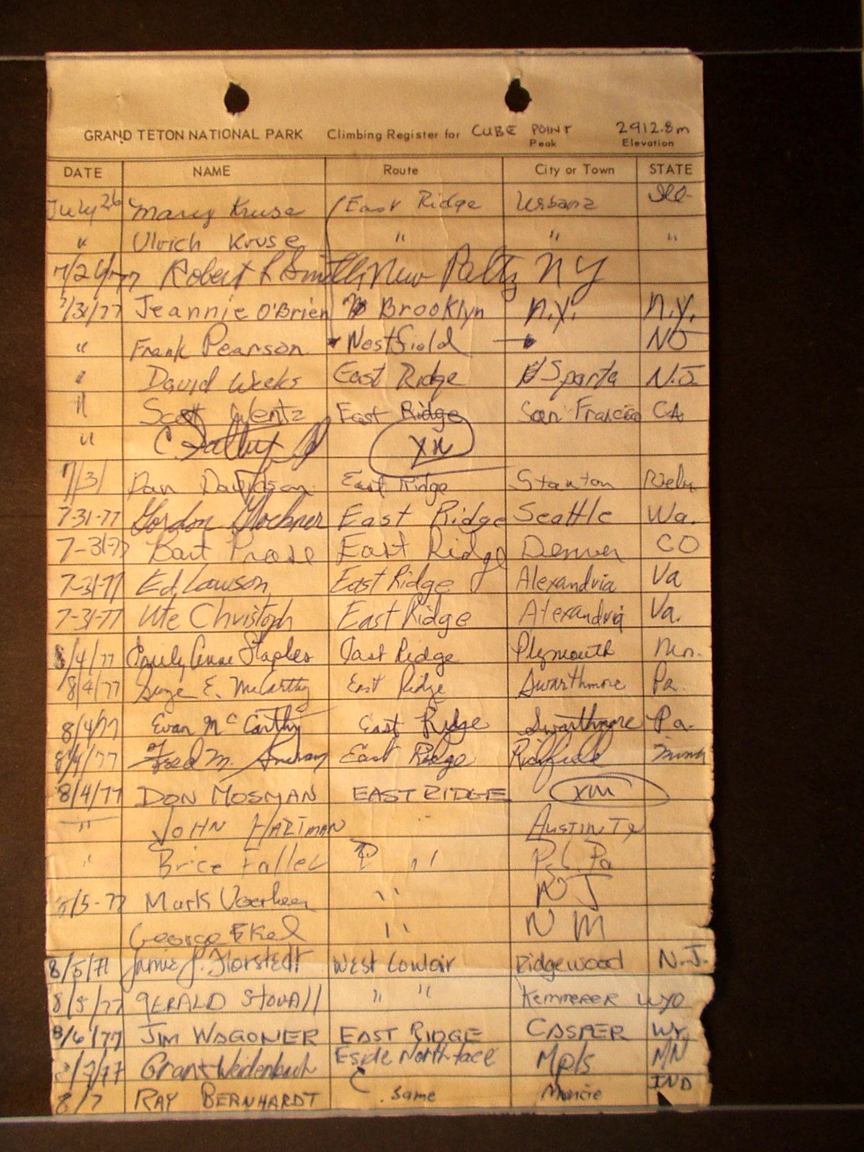 GRAND TETON NATIONAL PARK Climbing Register for CUBE POINT 2912.8m
Peak Elevation
DATE NAME Route City or Town STATE
July 26 Marcy Kruse East Ridge Urbana Ill.
" Ulrich Kruse " " "
7/26/77 Robert L Smith New Paltz NY
7/31/77 Jeannie O'Brien Brooklyn N.Y. N.Y.
" Frank Pearson Westfield NJ
" David Weeks East Ridge Sparta N.J.
" Scott Wentz East Ridge San Francisco CA
" C.
7/31 Dan Davidson East Ridge Stanton Nebr.
7-31-77 Gordon East Ridge Seattle Wa.
7-31-77 Bart East Ridge Denver CO
7-31-77 Ed Lawson East Ridge Alexandria Va
7-31-77 Ute Christoph East Ridge Alexandria Va.
8/4/77 Anne Staples East Ridge Plymouth
8/4/77 E. McCarthy East Ridge Swarthmore Pa.
8/4/77 Evan McCarthy East Ridge Swarthmore Pa.
8/4/77 Fred M. East Ridge Richfield Minn
8/4/77 DON MOSMAN EAST RIDGE XIII
" JOHN HARTMAN " AUSTIN TX
" Brice " Pa
8/5-77 Mark Voorhees " NJ
George Ekel " NM
8/5/77 Jamie J. Florstedt West Ridgewood N.J.
8/5/77 GERALD STOVALL " " Kemmerer WYO
8/6/77 JIM WAGONER EAST RIDGE CASPER WY.
8/7/77 Grant Weidenbach E side North face Mpls MN
8/7 RAY BERNHARDT same Muncie IND